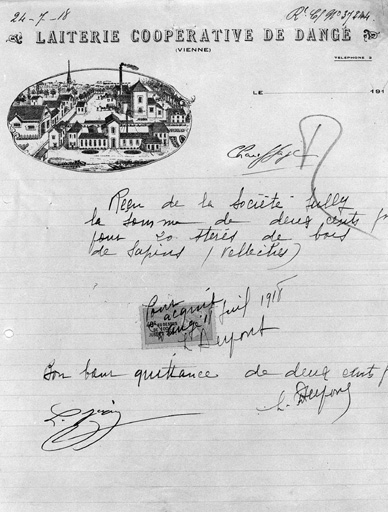 24-7-18
LAITERIE COOPÉRATIVE DE DANGÉ
(VIENNE)
TELEPHONE 2
LE 191
Chauffage
Reçu de la Société Sully
la somme de deux cents f
pour 20 stères de bois
de Sapins (
Pour acquit
Dangé 11 Juil 1918
Dupont
Bon pour quittance de deux cents f
L. Dupont